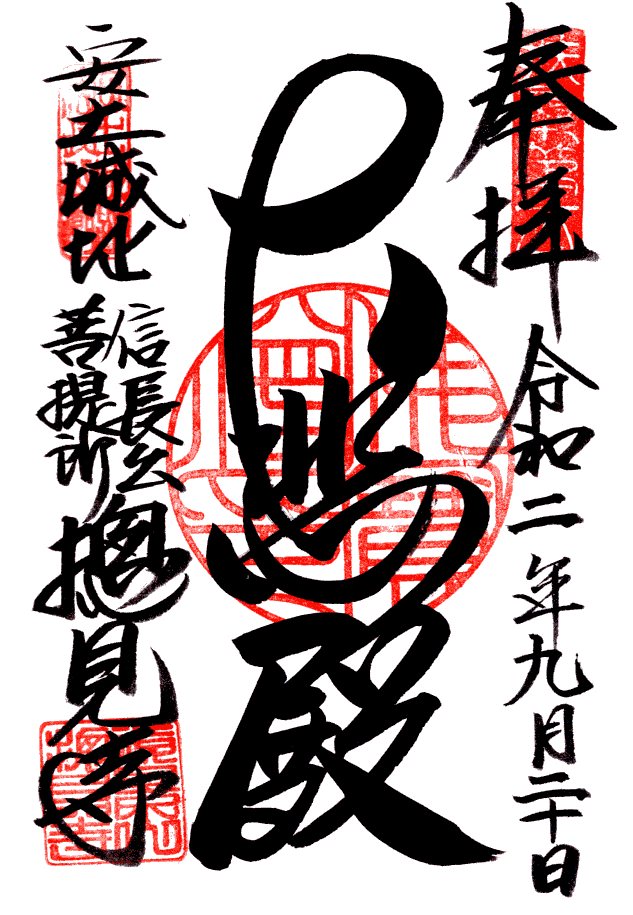 奉拝
令和二年九月二十日
大悲殿
安土城址
信長公
菩提所
摠見寺